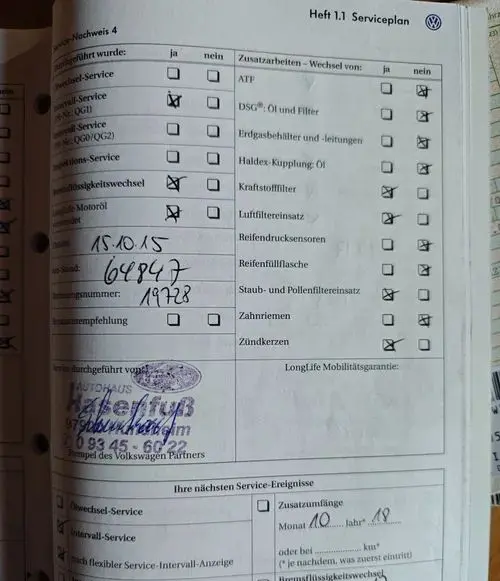 Heft 1.1 Serviceplan
Service-Nachweis 4
durchgeführt wurde: ja nein
Ölwechsel-Service
Intervall-Service
(PR-Nr.: QG1)
Intervall-Service
(PR-Nr.: QG0/QG2)
Inspektions-Service
Bremsflüssigkeitswechsel
LongLife Motoröl
verwendet
Datum: 15.10.15
km-Stand: 64847
Rechnungsnummer: 19728
Zusatzarbeiten – Wechsel von: ja nein
ATF
DSG®: Öl und Filter
Erdgasbehälter und -leitungen
Haldex-Kupplung: Öl
Kraftstofffilter
Luftfiltereinsatz
Reifendrucksensoren
Reifenfüllflasche
Staub- und Pollenfiltereinsatz
Zahnriemen
Zündkerzen
Service durchgeführt von:
AUTOHAUS
Hasenfuß
0 93 45 - 60 22
Stempel des Volkswagen Partners
LongLife Mobilitätsgarantie:
Ihre nächsten Service-Ereignisse
Ölwechsel-Service
Intervall-Service
nach flexibler Service-Intervall-Anzeige
Zusatzumfänge
Monat 10 Jahr* 18
oder bei km*
(* je nachdem, was zuerst eintritt)
Bremsflüssigkeitswechsel